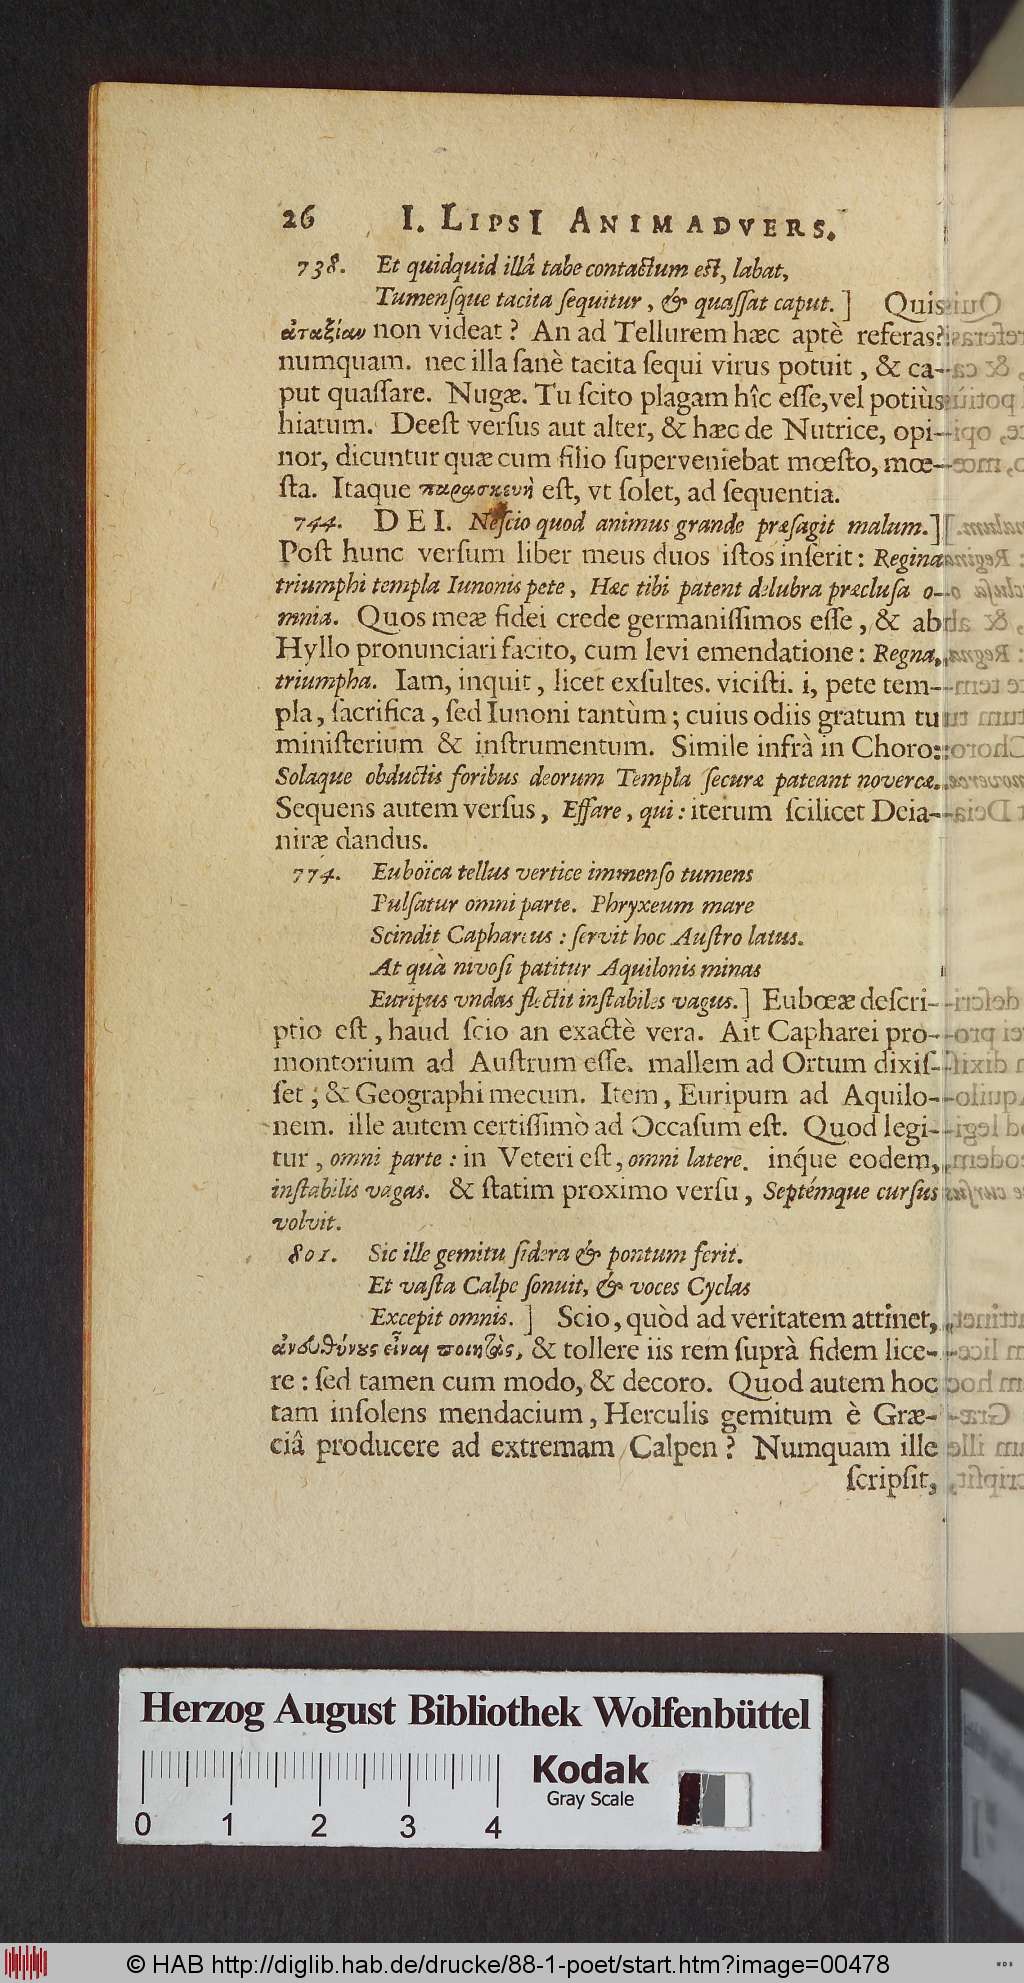 26 I. LIPSI ANIMADVERS.
738. Et quidquid illâ tabe contactum est, labat,
Tumenſque tacita ſequitur, & quaſſat caput.] Quis
ἀταξίαν non videat? An ad Tellurem hæc aptè referas?
numquam. nec illa ſanè tacita ſequi virus potuit, & ca-
put quaſſare. Nugæ. Tu ſcito plagam hîc eſſe, vel potiùs
hiatum. Deeſt verſus aut alter, & hæc de Nutrice, opi-
nor, dicuntur quæ cum filio ſuperveniebat mœſto, mœ-
ſta. Itaque παρασκευὴ eſt, vt ſolet, ad ſequentia.
744. DEI. Neſcio quod animus grande præſagit malum.]
Poſt hunc verſum liber meus duos iſtos inſerit: Regina
triumphi templa Iunonis pete, Hæc tibi patent delubra præcluſa o-
mnia. Quos meæ fidei crede germaniſſimos eſſe, & ab
Hyllo pronunciari facito, cum levi emendatione: Regna,
triumpha. Iam, inquit, licet exſultes. viciſti. i, pete tem-
pla, ſacrifica, ſed Iunoni tantùm; cuius odiis gratum tu
miniſterium & inſtrumentum. Simile infrà in Choro:
Solaque obductis foribus deorum Templa ſecuræ pateant novercæ.
Sequens autem verſus, Effare, qui: iterum ſcilicet Deia-
niræ dandus.
774. Euboïca tellus vertice immenſo tumens
Pulſatur omni parte. Phryxeum mare
Scindit Caphareus: ſervit hoc Auſtro latus.
At quà nivoſi patitur Aquilonis minas
Euripus vndas flectit inſtabiles vagus.] Eubœæ deſcri-
ptio eſt, haud ſcio an exactè vera. Ait Capharei pro-
montorium ad Auſtrum eſſe. mallem ad Ortum dixiſ-
ſet; & Geographi mecum. Item, Euripum ad Aquilo-
nem. ille autem certiſſimò ad Occaſum eſt. Quod legi-
tur, omni parte: in Veteri eſt, omni latere. inq́ue eodem,
inſtabilis vagas. & ſtatim proximo verſu, Septémque curſus
volvit.
801. Sic ille gemitu ſidera & pontum ferit.
Et vaſta Calpe ſonuit, & voces Cyclas
Excepit omnis.] Scio, quòd ad veritatem attinet,
ἀνευθύνους εἶναι ποιητὰς, & tollere iis rem ſuprà fidem lice-
re: ſed tamen cum modo, & decoro. Quod autem hoc
tam inſolens mendacium, Herculis gemitum è Græ-
ciâ producere ad extremam Calpen? Numquam ille
ſcripſit,
Herzog August Bibliothek Wolfenbüttel
Kodak
Gray Scale
0 1 2 3 4
© HAB http://diglib.hab.de/drucke/88-1-poet/start.htm?image=00478